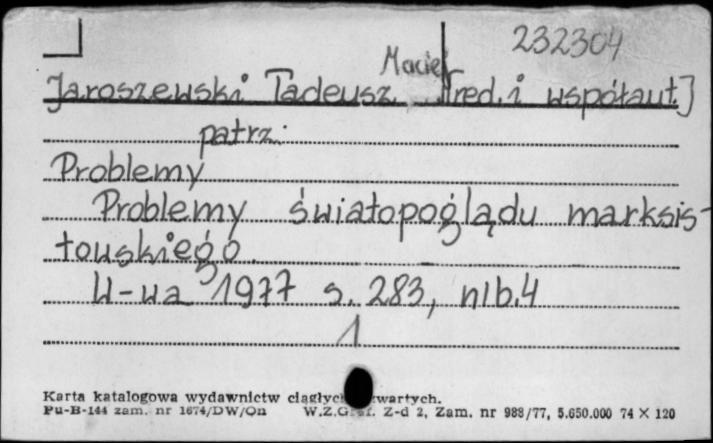 232304
Maciej
Jaroszewski Tadeusz [red. i współaut.]
patrz:
Problemy
Problemy światopoglądu marksis-
towskiego.
W-wa 1977 s. 283, nlb. 4
1
Karta katalogowa wydawnictw ciągłych zwartych.
Pu-B-144 zam. nr 1674/DW/On W.Z.Graf. Z-d 2, Zam. nr 988/77, 5.650.000 74 × 120